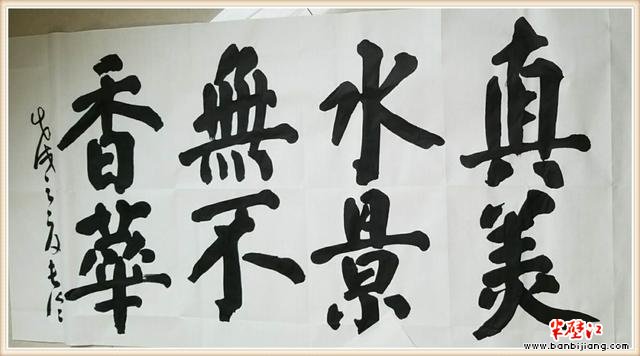 真美
水景
無不
香華
戊戌之夏
半壁江
www.banbijiang.com